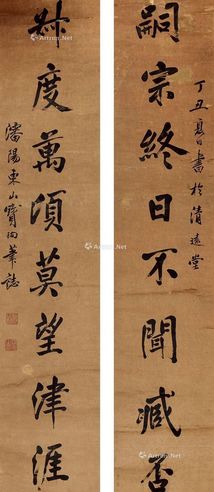 丁丑夏日書於清遠堂
嗣宗終日不聞臧否
叔度萬頃莫望津涯
瀋陽東山寶